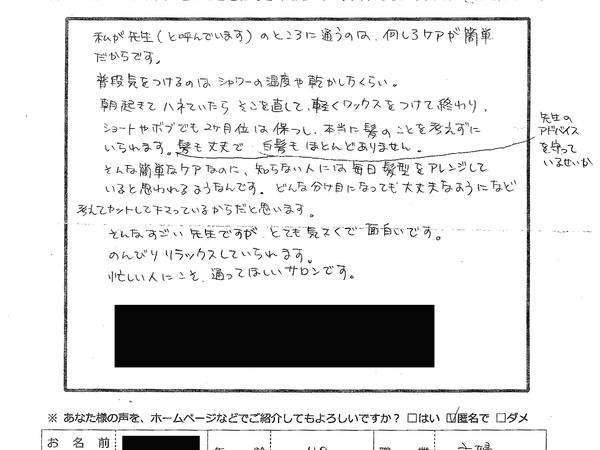 私が先生(と呼んでいます)のところに通うのは、何しろケアが簡単
だからです。
普段気をつけるのはシャワーの温度や乾かし方くらい。
朝起きてハネていたらそこを直して、軽くワックスをつけて終わり。
ショートやボブでも2ヶ月位は保つし、本当に髪のことを考えずに
いられます。髪も丈夫で白髪もほとんどありません。
先生の
アドバイス
を守って
いるせいか
そんな簡単なケアなのに、知らない人には毎日髪型をアレンジして
いると思われるようなんです。どんな分け目になっても大丈夫なようになど
考えてカットして下さっているからだと思います。
そんなすごい先生ですが、とても気さくで面白いです。
のんびりリラックスしていられます。
忙しい人にこそ、通ってほしいサロンです。
※ あなた様の声を、ホームページなどでご紹介してもよろしいですか? □はい ☑匿名で □ダメ
お名前